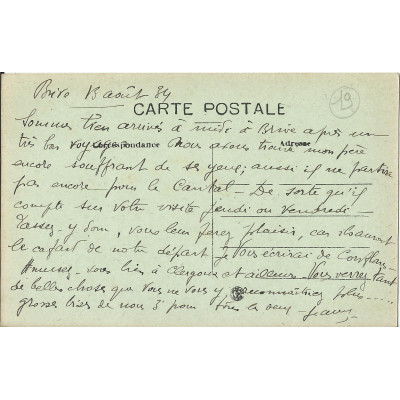 Brive 13 août 34
19
CARTE POSTALE
Sommes bien arrivés à midi à Brive après un
très bon voyage. Nous avons trouvé mon père
Correspondance
Adresse
encore souffrant de ses yeux ; aussi il ne partira
pas encore pour le Cantal — De sorte qu'il
compte sur votre visite jeudi ou vendredi —
Passez-y donc, vous leur ferez plaisir, car ils auront
le cafard de notre départ. Je vous écrirai de
Amusez-vous bien à Clergoux et ailleurs — Vous verrez tant
de belles choses que vous ne vous y reconnaîtrez plus ....
grosses bises de nous 3 pour tous les deux —